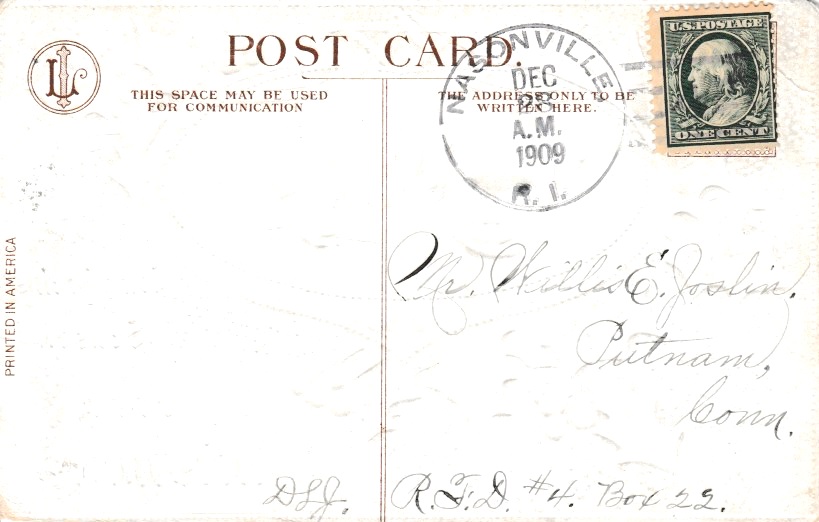 POST CARD.
THIS SPACE MAY BE USED
FOR COMMUNICATION
THE ADDRESS ONLY TO BE
WRITTEN HERE.
NASONVILLE
DEC
A.M.
1909
R. I.
U.S. POSTAGE
ONE CENT
PRINTED IN AMERICA
Mr. Willis E. Joslin,
Putnam,
Conn.
DLJ.
R.F.D. #4. Box 22.